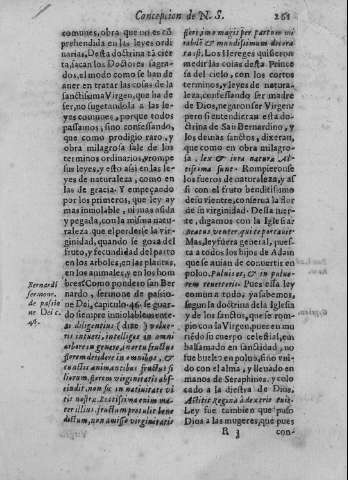 Concepcion de N. S. 261
comunes, obra que no es cõ
prehendida en las leyes ordi
narias. Desta doctrina tã cier
ta, sacan los Doctores sagra-
dos, el modo como se han de
auer en tratar las cosas de la
sanctissima Virgen, que ha de
ser, no sugetandola a las le-
yes comunes, porque todos
passamos, sino confessando,
que como prodigio raro, y
obra milagrosa sale de los
terminos ordinarios, y rompe
sus leyes, y esto assi en las le-
yes de naturaleza, como en
las de gracia. Y empeçando
por los primeros, que ley ay
mas inuiolable, ni mas asida
y pegada, con la misma natu-
raleza, que el perderse la vir-
ginidad, quando se goza del
fruto, y fecundidad del parto
en los arboles, en las plantas,
en los animales, y en los hom
bres? Como pondero san Ber
nardo, sermone, de passio-
ne Dei, capitulo 45. se guar-
do siempre inuiolablemente:
si diligentius (dize) volue-
ris intueri, intelliges in omni
arbore in genere, & ortu fructus
florem decidere in omnibus, &
cunctis animantibus fructus fi
liorum, florem virginitatis abs
cindit, non sic in natiuitate vi
tis nostræ. Rectissima enim ma-
ter illius, fructum protulit bene
dictum, non amisso virginitatis
Bernardi
sermone.
de passio
ne Dei c.
45.
flore, imo magis per partum mi
rabilẽ & mundissimum decora
ta fuit. Los Hereges quisieron
medir las cosas desta Prince
sa del cielo, con los cortos
terminos, y leyes de natura-
leza, confessando ser madre
de Dios, negaron ser Virgen;
pero si entendieran esta do-
ctrina de San Bernardino, y
los demas sanctos, dixeran,
que como en obra milagro-
sa, lex & iura natura Al-
tissima sunt. Rompieronse
los fueros de naturaleza, y as
si con el fruto benditissimo
de su vientre, conserua la flor
de su virginidad. Desta suer-
te, digamos con la Iglesia:
Beatus venter, qui te portauit.
Mas, ley fuera general, pues-
ta a todos los hijos de Adam
que se auian de conuertir en
poluo. Puluis es, & in pulue-
rem reuerteris. Pues esta ley
comun a todos, passabemos,
segun la doctrina de la Iglesia
y de los sanctos, que se rom-
pio con la Virgen, pues en mu
riẽdo su cuerpo celestial, em
balsamado en sanctidad, no
fue buelto en poluo, sino vni-
do con el alma, y lleuado en
manos de Seraphines, y colo
cado a la diestra de Dios.
Astitit Regina à dextris tuis.
Ley fue tambien que puso
Dios a las mugeres, que pues
R 3 con-